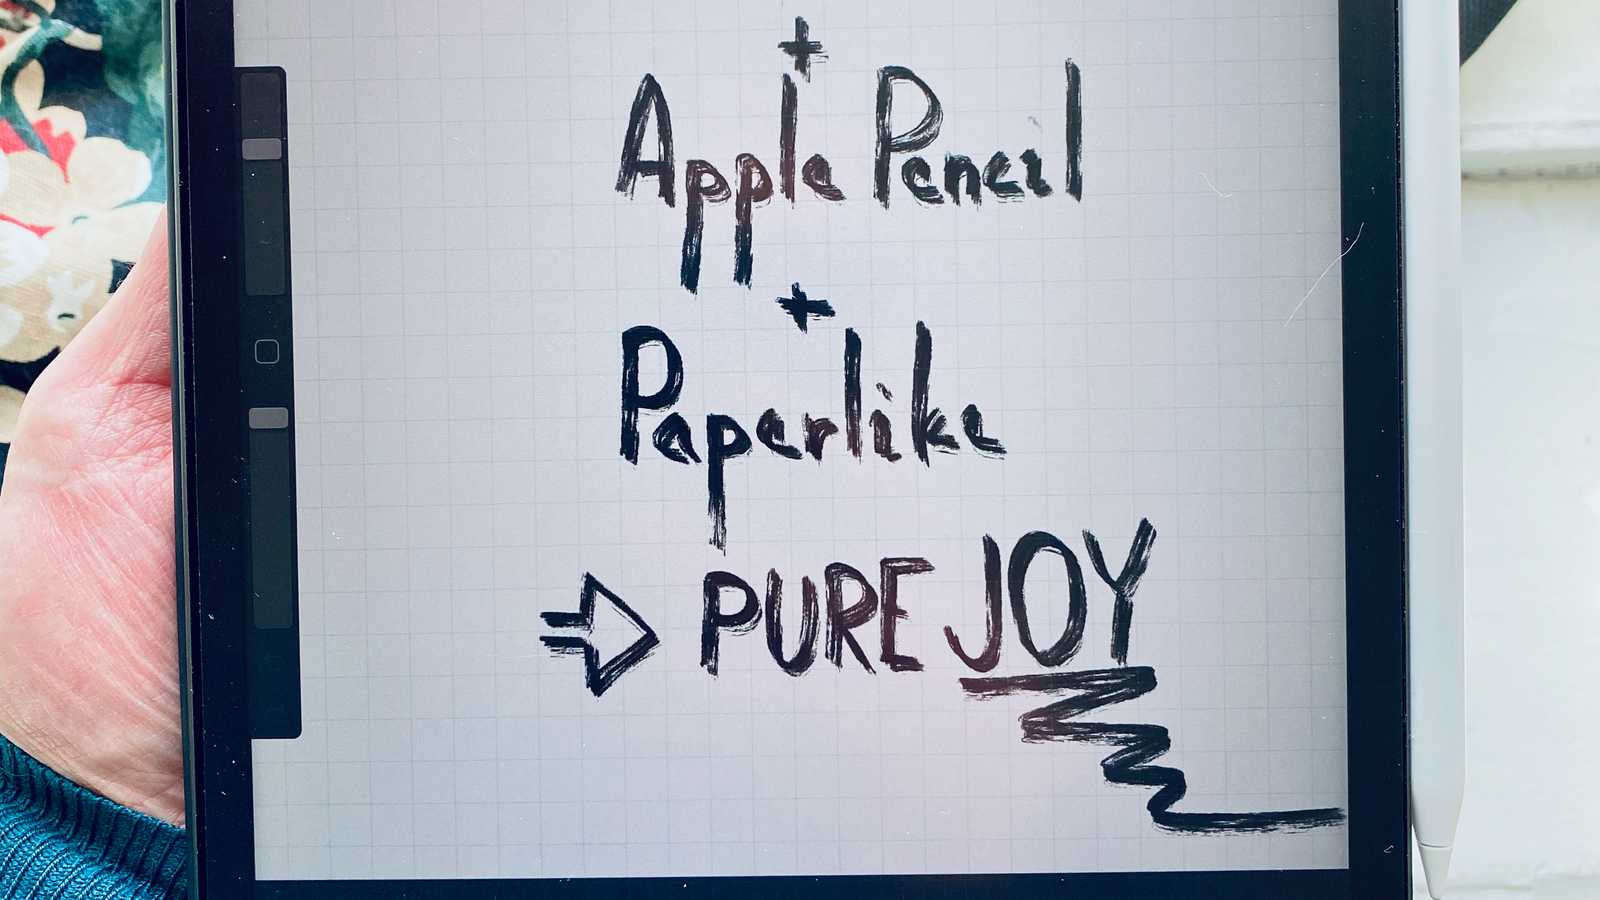 +
Apple Pencil
+
Paperlike
⇒ PURE JOY